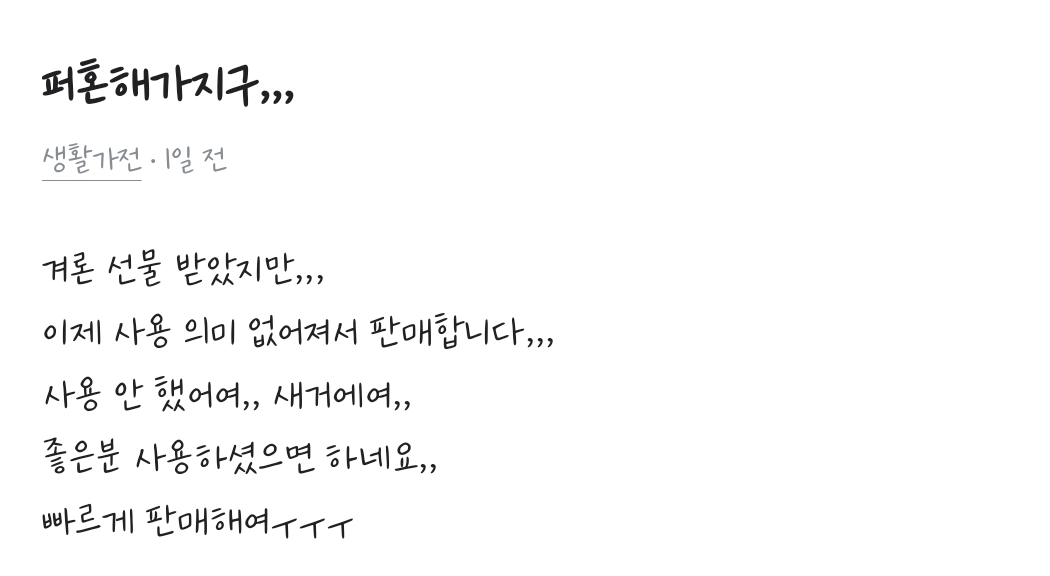 퍼혼해가지구,,,
생활가전 · 1일 전
겨론 선물 받았지만,,,
이제 사용 의미 없어져서 판매합니다,,,
사용 안 했어여,, 새거에여,,
좋은분 사용하셨으면 하네요,,
빠르게 판매해여ㅜㅜㅜ